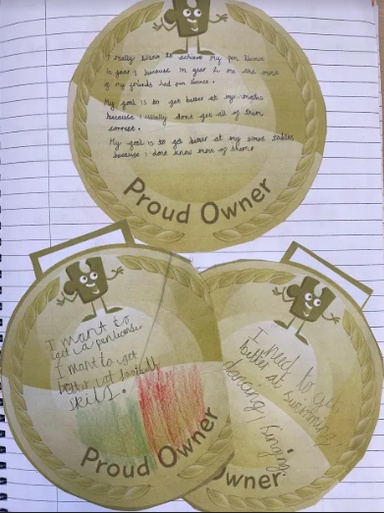 I really want to achieve my pen licence
in year 3 because in year 2 me and most
of my friends had pen licence.
My goal is to get better at my maths
because i usually don't get all of them
correct.
My goal is to get better at my times tables
because i dont know most of them.
Proud Owner
I want to
get a penlicence
I want to get
better at football
skills.
Proud Owner
I need to get
better at swimming
dancing singing
Owner